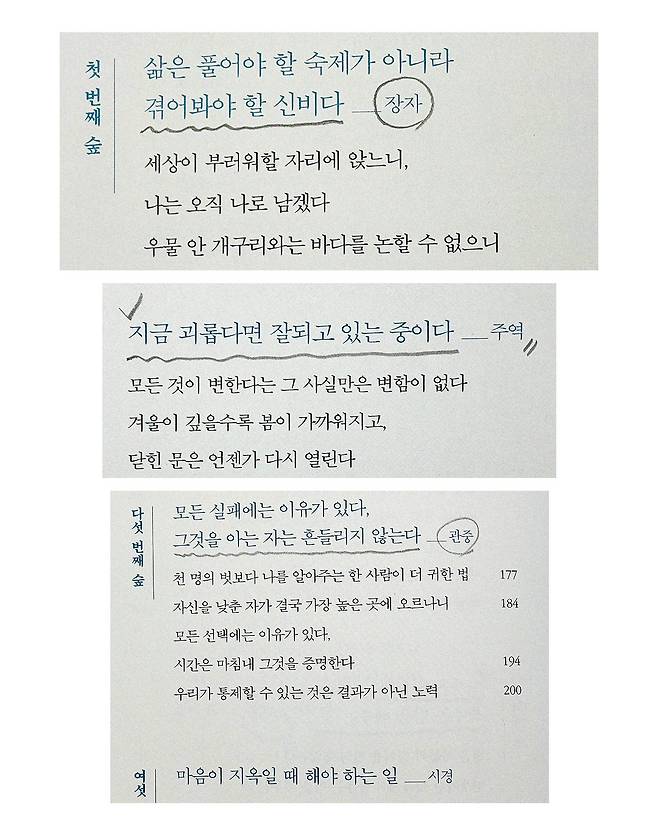 첫 번째 숲
삶은 풀어야 할 숙제가 아니라
겪어봐야 할 신비다 __장자
세상이 부러워할 자리에 앉느니,
나는 오직 나로 남겠다
우물 안 개구리와는 바다를 논할 수 없으니
지금 괴롭다면 잘되고 있는 중이다 __주역
모든 것이 변한다는 그 사실만은 변함이 없다
겨울이 깊을수록 봄이 가까워지고,
닫힌 문은 언젠가 다시 열린다
다섯 번째 숲
모든 실패에는 이유가 있다,
그것을 아는 자는 흔들리지 않는다 __관중
천 명의 벗보다 나를 알아주는 한 사람이 더 귀한 법 177
자신을 낮춘 자가 결국 가장 높은 곳에 오르나니 184
모든 선택에는 이유가 있다,
시간은 마침내 그것을 증명한다 194
우리가 통제할 수 있는 것은 결과가 아닌 노력 200
여섯
마음이 지옥일 때 해야 하는 일 __시경